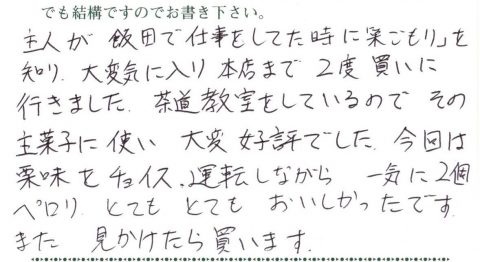 でも結構ですのでお書き下さい。
主人が 飯田で仕事をしてた時に「巣ごもり」を
知り. 大変気に入り 本店まで 2度 買いに
行きました. 茶道教室をしているので その
主菓子に 使い 大変 好評でした. 今回は
栗味を チョイス. 運転しながら 一気に2個
ペロリ. とても とても おいしかったです.
また 見かけたら 買います.